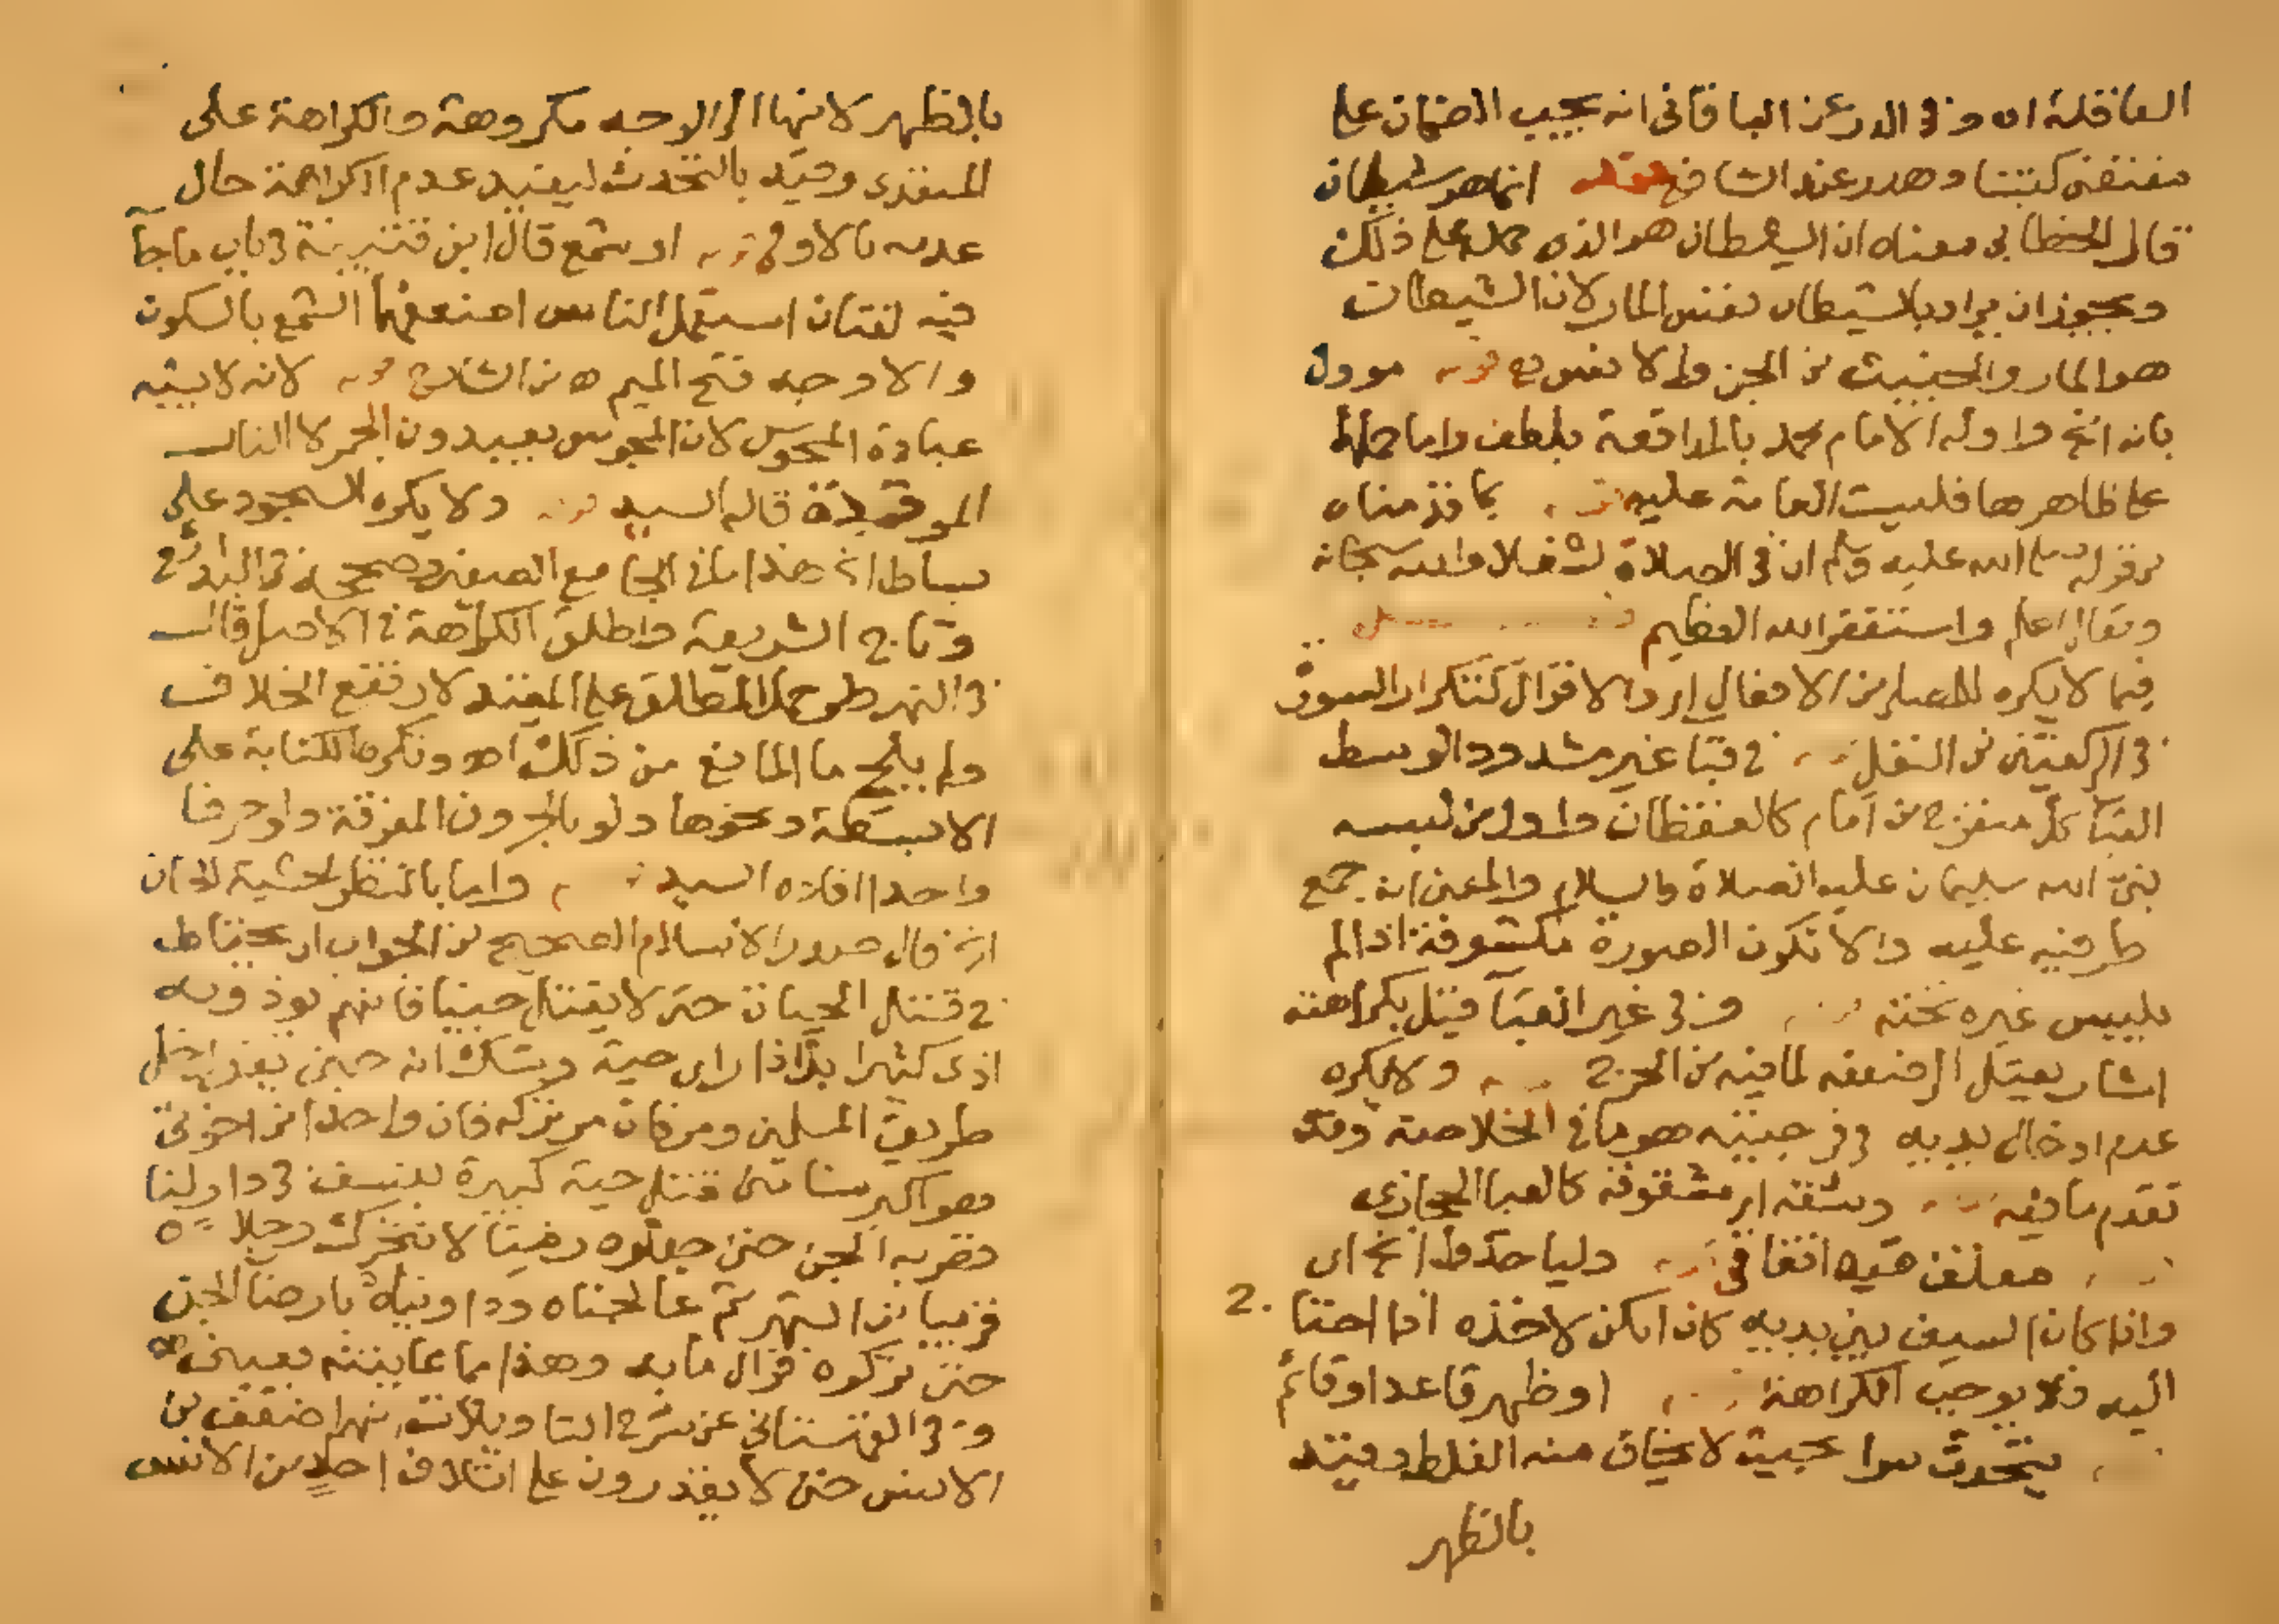 العاقلة اه وفى الدر عن الباقانى انه يجب الضمان على
مقتضى كتبنا وهدر عند الشافعى قوله انما هو شيطان
قال الخطابى معناه ان الشيطان هو الذى حمله على ذلك
ويجوز ان يراد بالشيطان نفس المار لان الشيطان
هو المارد الخبيث من الجن والانس قوله موول
بانه الخ واوله الامام محمد بالمدافعة بلطف واما حملها
على ظاهرها فليست العامة عليه بما قدمناه
من قوله صلى الله عليه وسلم ان فى الصلاة لشغلا والله سبحانه
وتعالى اعلم واستغفر الله العظيم
فيما لا يكره للمصلى من الافعال اى والاقوال كتكرار السورة
فى الركعتين من النفل فى قبا غير مشدود الوسط
القبا كل مفرج من امام كالقفطان واول من لبسه
نبى الله سليمان عليه الصلاة والسلام والمعنى انه جمع
طرفيه عليه والا تكون الصورة مكشوفة اذا لم
يلبس غيره تحته وفى غير القبا قيل بكراهته
اشار بقيل الى ضعفه لما فيه من الحرج ولا يكره
عدم ادخال يديه فى فرجيته هو ما فى الخلاصة وقد
تقدم ما فيه وشقه اى مشقوقه كالعبا الحجازى
معلق قيد اتفاقى وليا خذوا الخ اى
واذا كان السيف بين يديه كان امكن لاخذه اذا احتا
اليه فلا يوجب الكراهة او ظهر قاعد او قائم
يتحدث سرا بحيث لا يخاف منه الغلط وقيد
بالظهر
بالظهر لانها الى الوجه مكروهة والكراهة على
المقتدى وقيد بالتحدث ليفيد عدم الكراهة حال
عدمه بالاولى قوله او شمع قال ابن قتيبة فى باب ما جا
فيه لغتان استعمل الناس اضعفهما الشمع بالسكون
والاوجه فتح الميم اه من الشلبى قوله لانه لا يشبه
عبادة المجوس لان المجوس يعبدون الجمر لا النار
الموقدة قاله السيد قوله ولا يكره السجود على
بساط الخ هذا ما فى الجامع الصغير وصححه فى البدائع
وتاج الشريعة واطلق الكراهة فى الاصل قال
فى النهر طو حمل المطلق على المقيد لارتفع الخلاف
ولم يبلج ما المانع من ذلك اه وتكره الكتابة على
الابسطة ونحوها ولو بالحروف المفرقة او حرفا
واحدا افاده السيد واما بالنظر لخشية الجان
الخ قال صدر الاسلام الصحيح من الجواب ان يحتاط
فى قتل الحيات حتى لا يقتل جنيا فانهم يوذونه
اذى كثيرا بل اذا راى حية وشك انه جنى يقول له خل
طريق المسلمين ومر فان مر تركه فان واحدا من اخوتى
هو اكبر سنا منى قتل حية كبيرة بسيف فى دار لنا
فضربه الجن حتى جعلوه زمنا لا تتحرك رجلاه
قريبا من الشهر ثم عالجناه وداويناه بارضا الجن
حتى تركوه فزال ما به وهذا مما عاينته بعينى اه
وفى القهستانى عن شرح التاويلات انهم اضعف من
الانس حتى لا يقدرون على اتلاف احد من الانس